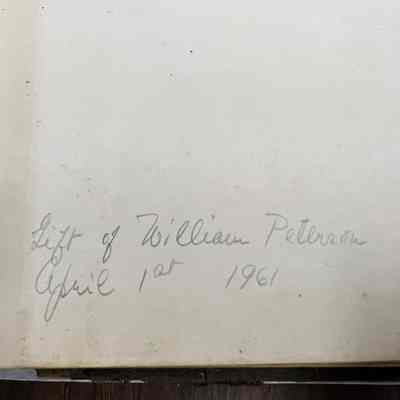 Gift of William Peterson
April 1st 1961